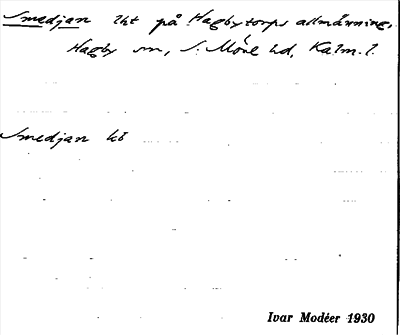 Smedjan lht på Hagbytorps allmänning,
Hagby sn, S. Möre hd, Kalm. l.
Smedjan
Ivar Modéer 1930